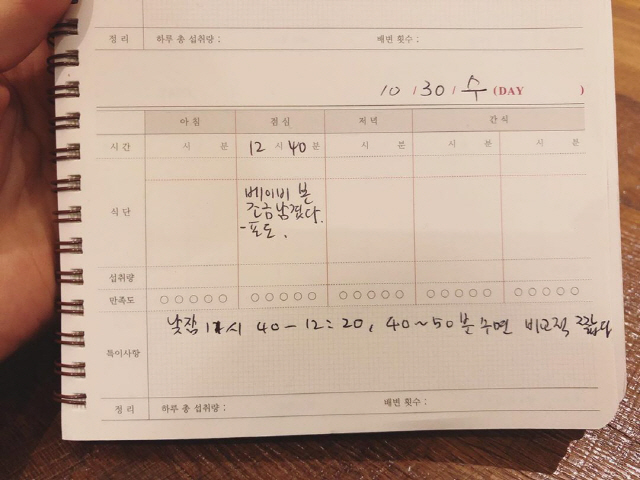 정리 하루 총 섭취량 : 배변 횟수 :
10 / 30 / 수 (DAY )
아침 점심 저녁 간식
시간 시 분 12 시 40 분 시 분 시 분 시 분
식단 베이비 본
조금 남겼다.
- 포도.
섭취량
만족도 ○○○○○ ○○○○○ ○○○○○ ○○○○○ ○○○○○
낮잠 11시 40 - 12:20, 40~50분 수면 비교적 짧았다
특이사항
정리 하루 총 섭취량 : 배변 횟수 :